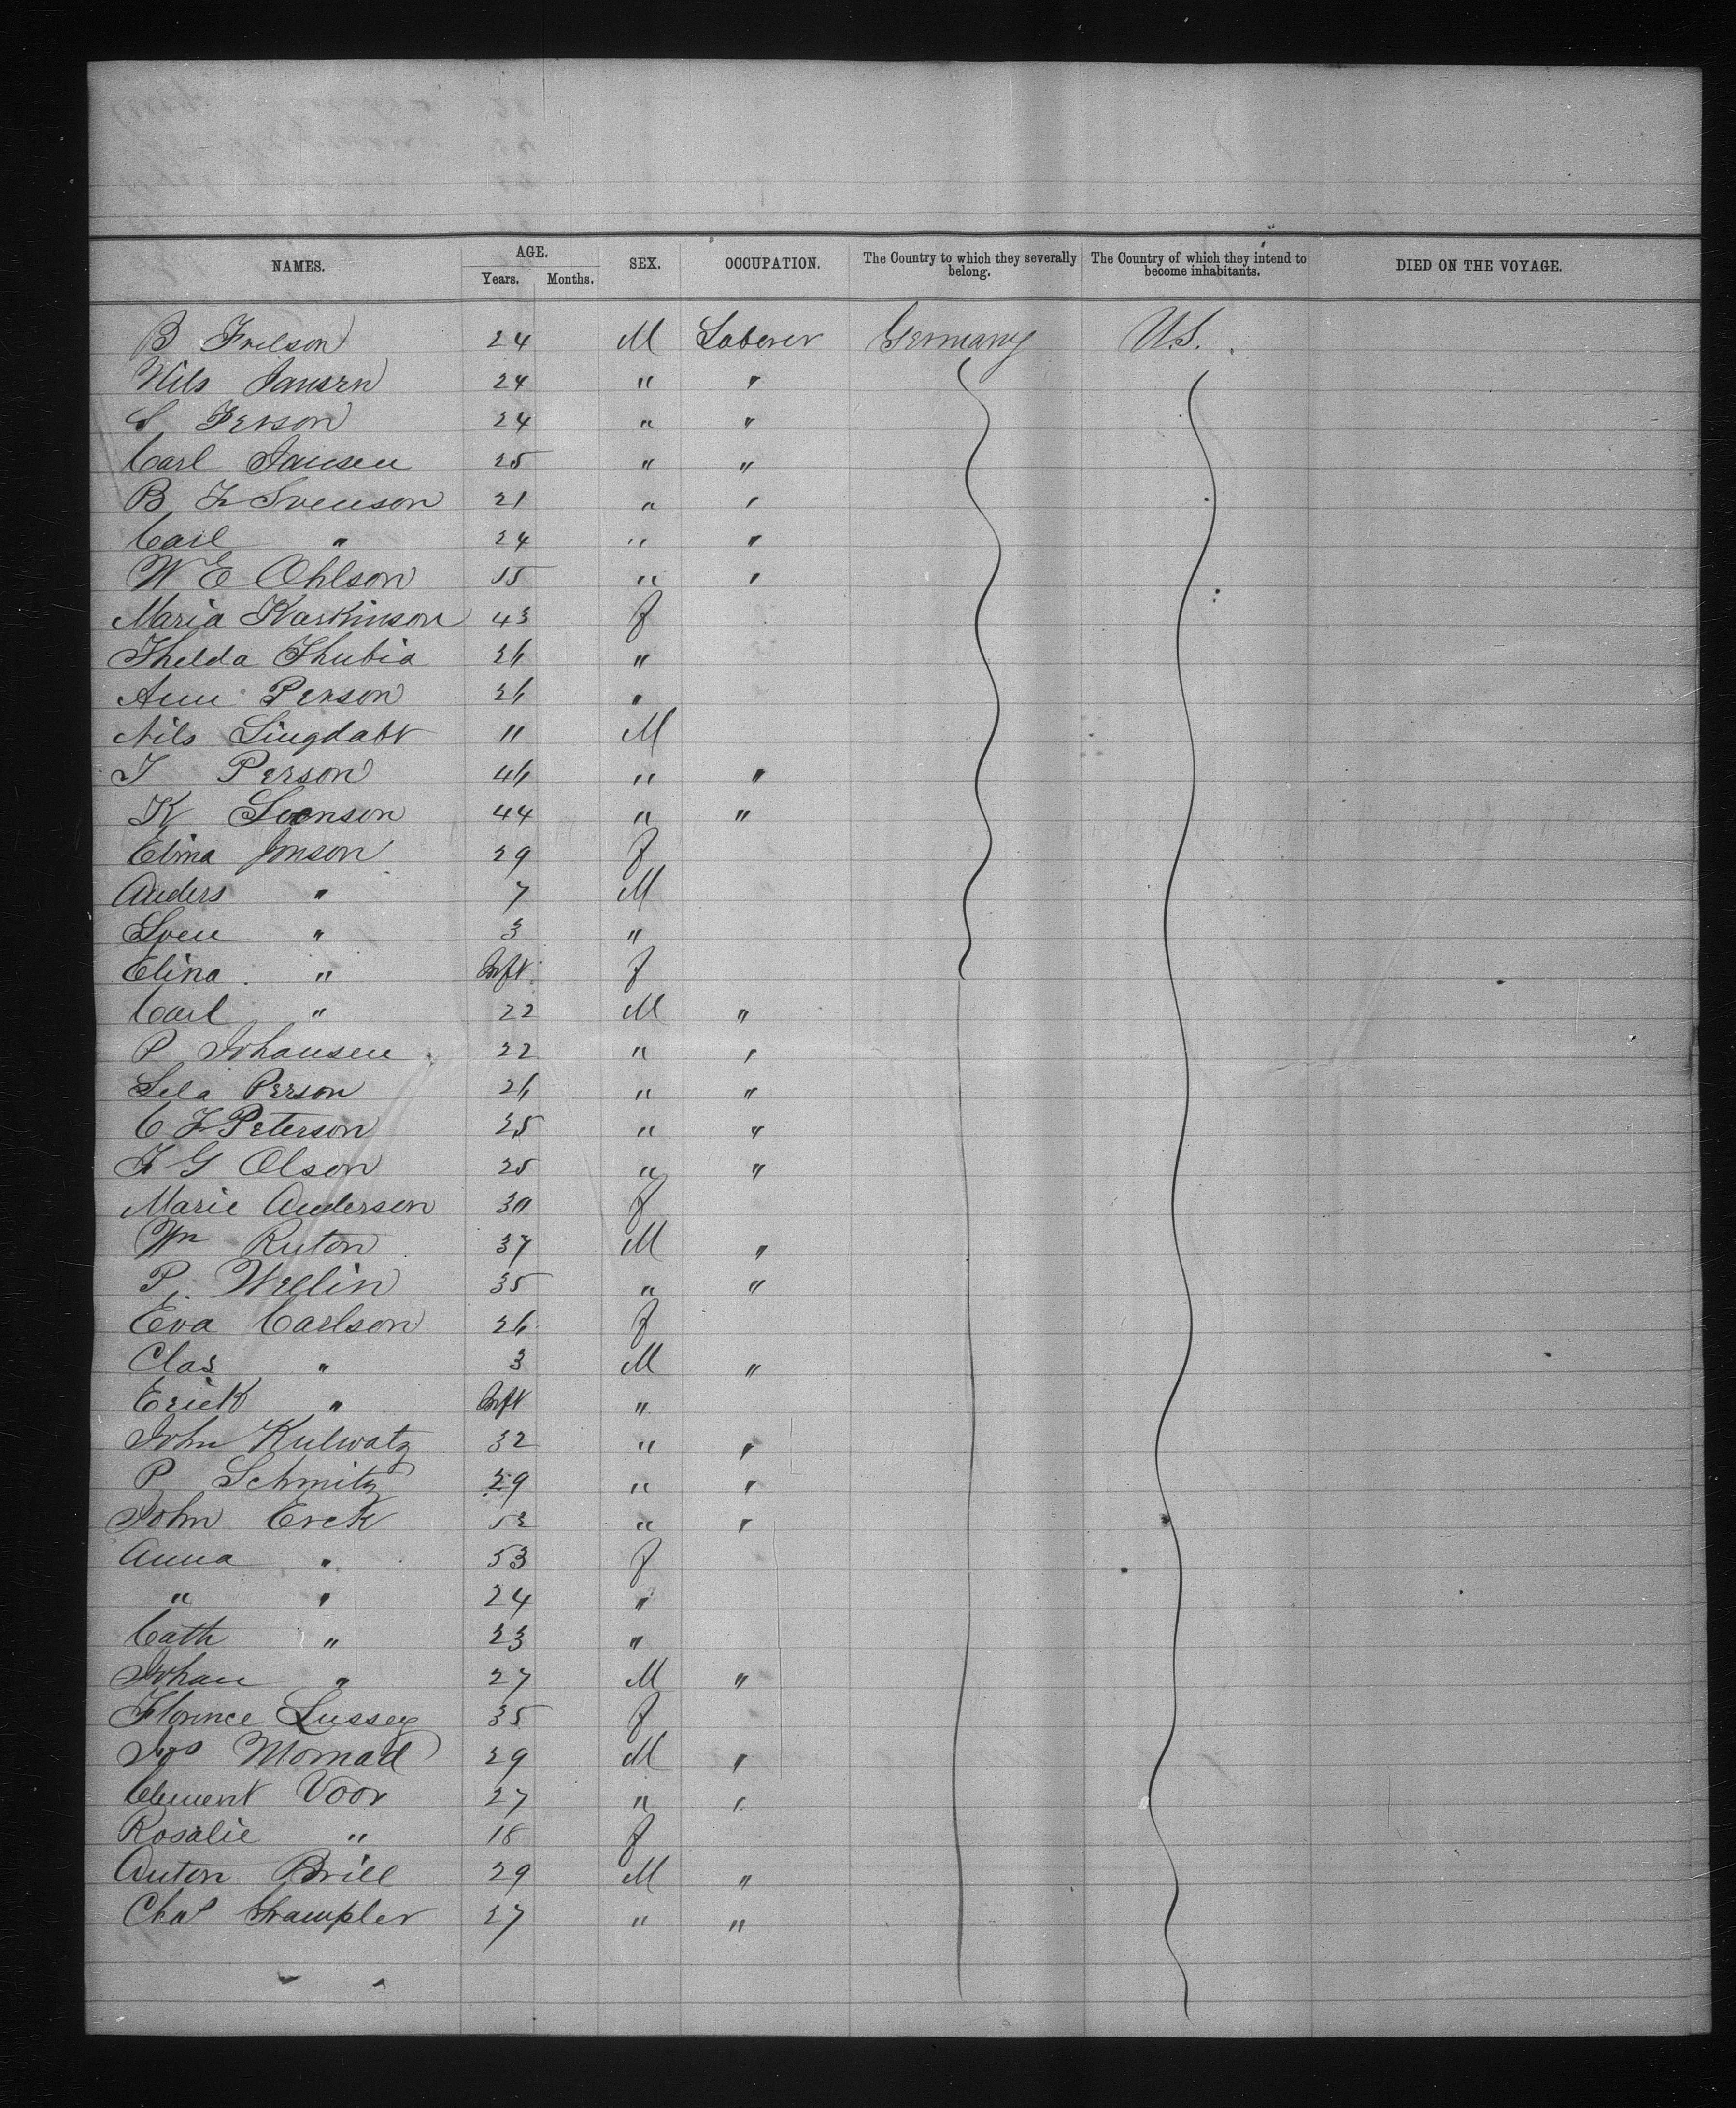 NAMES. AGE. Years. Months. SEX. OCCUPATION. The Country to which they severally belong. The Country of which they intend to become inhabitants. DIED ON THE VOYAGE.
B 24 M Laborer Germany U.S.
Nils Jansen 24 " "
S Person 24 " "
Carl Jansen 25 " "
B F Svenson 21 " "
Carl " 24 " "
W E Ohlson 15 " "
Maria Karkinson 43 f
Thelda Thubia 26 "
Ann Person 26 "
Nils 11 M
J Person 46 " "
K Svenson 44 " "
Elina Jonson 29 f
Anders " 7 M
Sven " 3 "
Elina " Inft. f
Carl " 22 M "
P Johansen 22 " "
Person 26 " "
C F Peterson 25 " "
F G Olson 25 " "
Marie Anderson 30 f
Wm Ruton 37 M "
P. Wellin 35 " "
Eva Carlson 26 f
Clas " 3 M "
Erick " Inft "
John Kulwatz 32 " "
P Schmitz 29 " "
John Erck 52 " "
Anna " 53 f
" " 24 "
Cath " 23 "
Johan " 27 M "
Florence Lussey 35 f
Jos Momad 29 M "
Clement Voor 27 " "
Rosalie " 18 f
Anton Brill 29 M "
Chas 27 " "